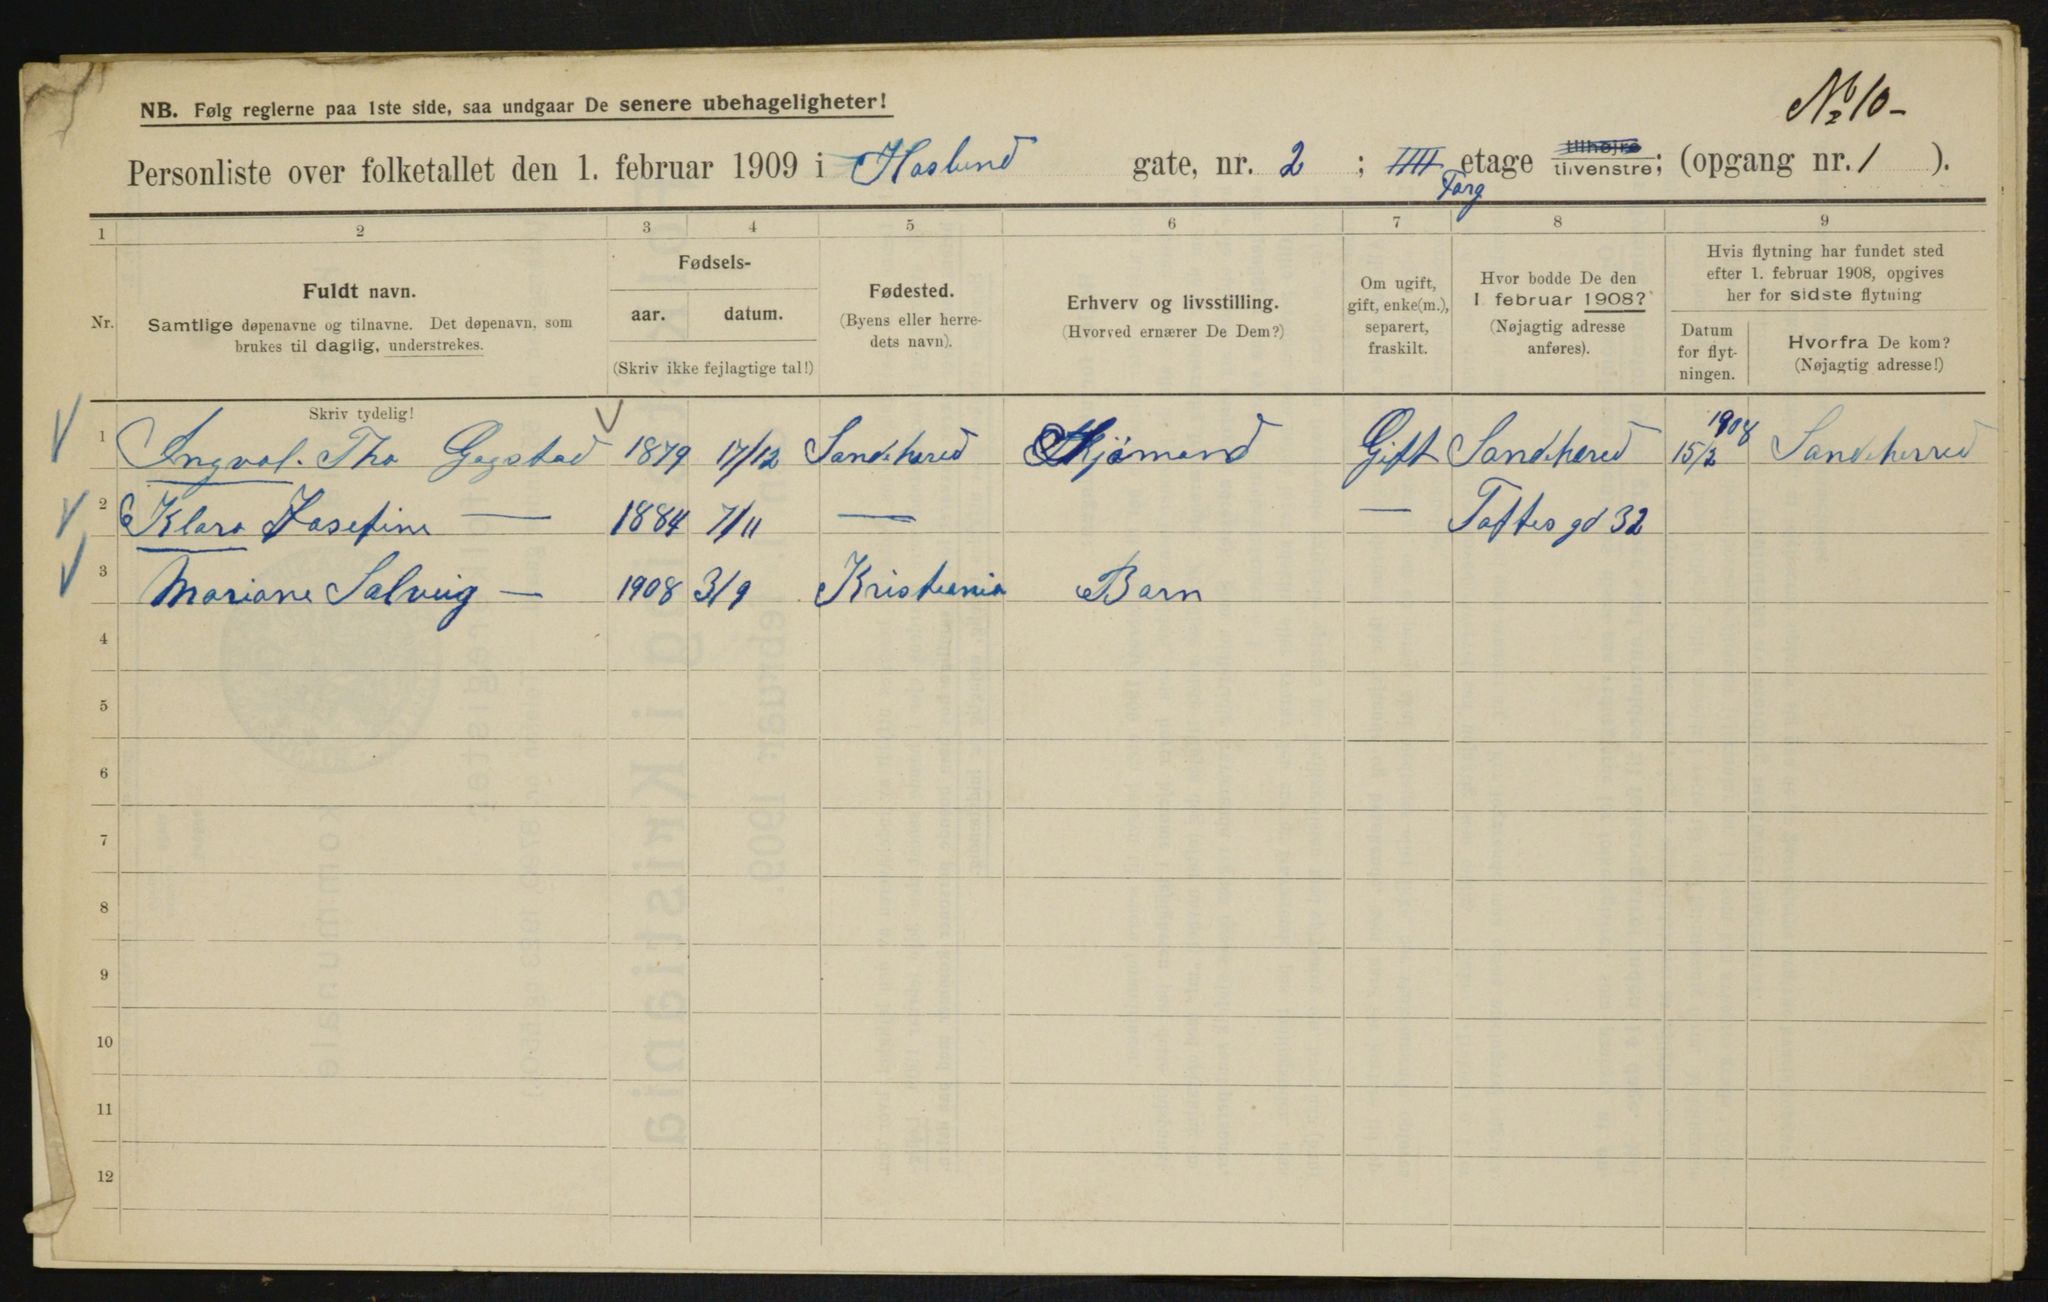 No 10-
NB. Følg reglerne paa 1ste side, saa undgaar De senere ubehageligheter!
Personliste over folketallet den 1. februar 1909 i Haslund gate, nr. 2 ; IIII etage tilhøjre tilvenstre; (opgang nr. 1 ).
Torg
1 2 3 4 5 6 7 8 9
Nr.
Fuldt navn.
Samtlige døpenavne og tilnavne. Det døpenavn, som
brukes til daglig, understrekes.
Fødsels-
aar. datum.
(Skriv ikke fejlagtige tal!)
Fødested.
(Byens eller herre-
dets navn).
Erhverv og livsstilling.
(Hvorved ernærer De Dem?)
Om ugift,
gift, enke(m.),
separert,
fraskilt.
Hvor bodde De den
1. februar 1908?
(Nøjagtig adresse
anføres).
Hvis flytning har fundet sted
efter 1. februar 1908, opgives
her for sidste flytning
Datum
for flyt-
ningen.
Hvorfra De kom?
(Nøjagtig adresse!)
Skriv tydelig!
1 Ingval. Tho Gogstad 1879 17/12 Sandehered Skjömand Gift Sandehered 15/2 1908 Sandeherred
2 Klara Josefine — 1884 7/11 — — Toftes gd 32
3 Mariane Solveig — 1908 3/9 Kristiania Barn
4
5
6
7
8
9
10
11
12